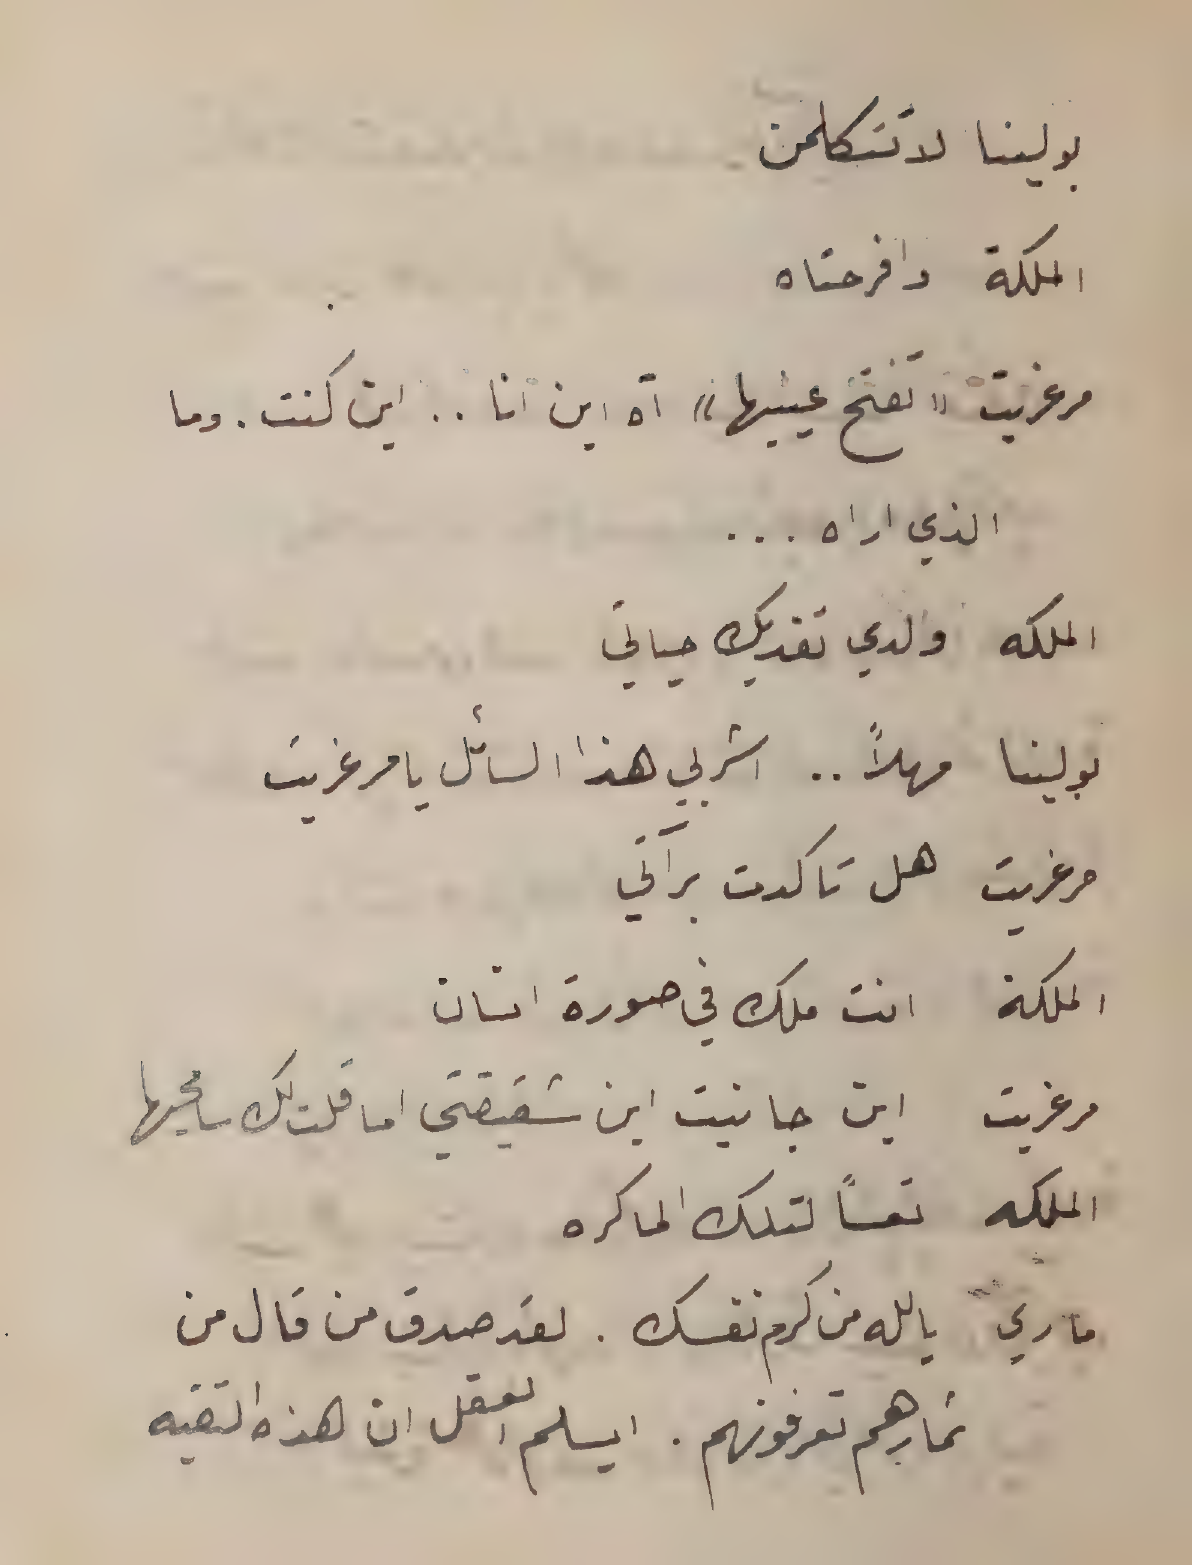 بولينا لا تتكلمن
الملكة وافرحتاه
مرغريت «تفتح عينيها» آه اين انا .. اين كنت . وما
الذي اراه ...
الملكه ولدي تفديك حياتي
بولينا مهلاً .. اشربي هذا السائل يا مرغريت
مرغريت هل تاكدت برآتي
الملكة انت ملك في صورة انسان
مرغريت اين جانيت اين شقيقتي اما قلت لك سامحيها
الملكه تعساً لتلك الماكره
ماري يالله من كرم نفسك . لقد صدق من قال من
ثمارهم تعرفونهم . ايسلم العقل ان هذه التقيه